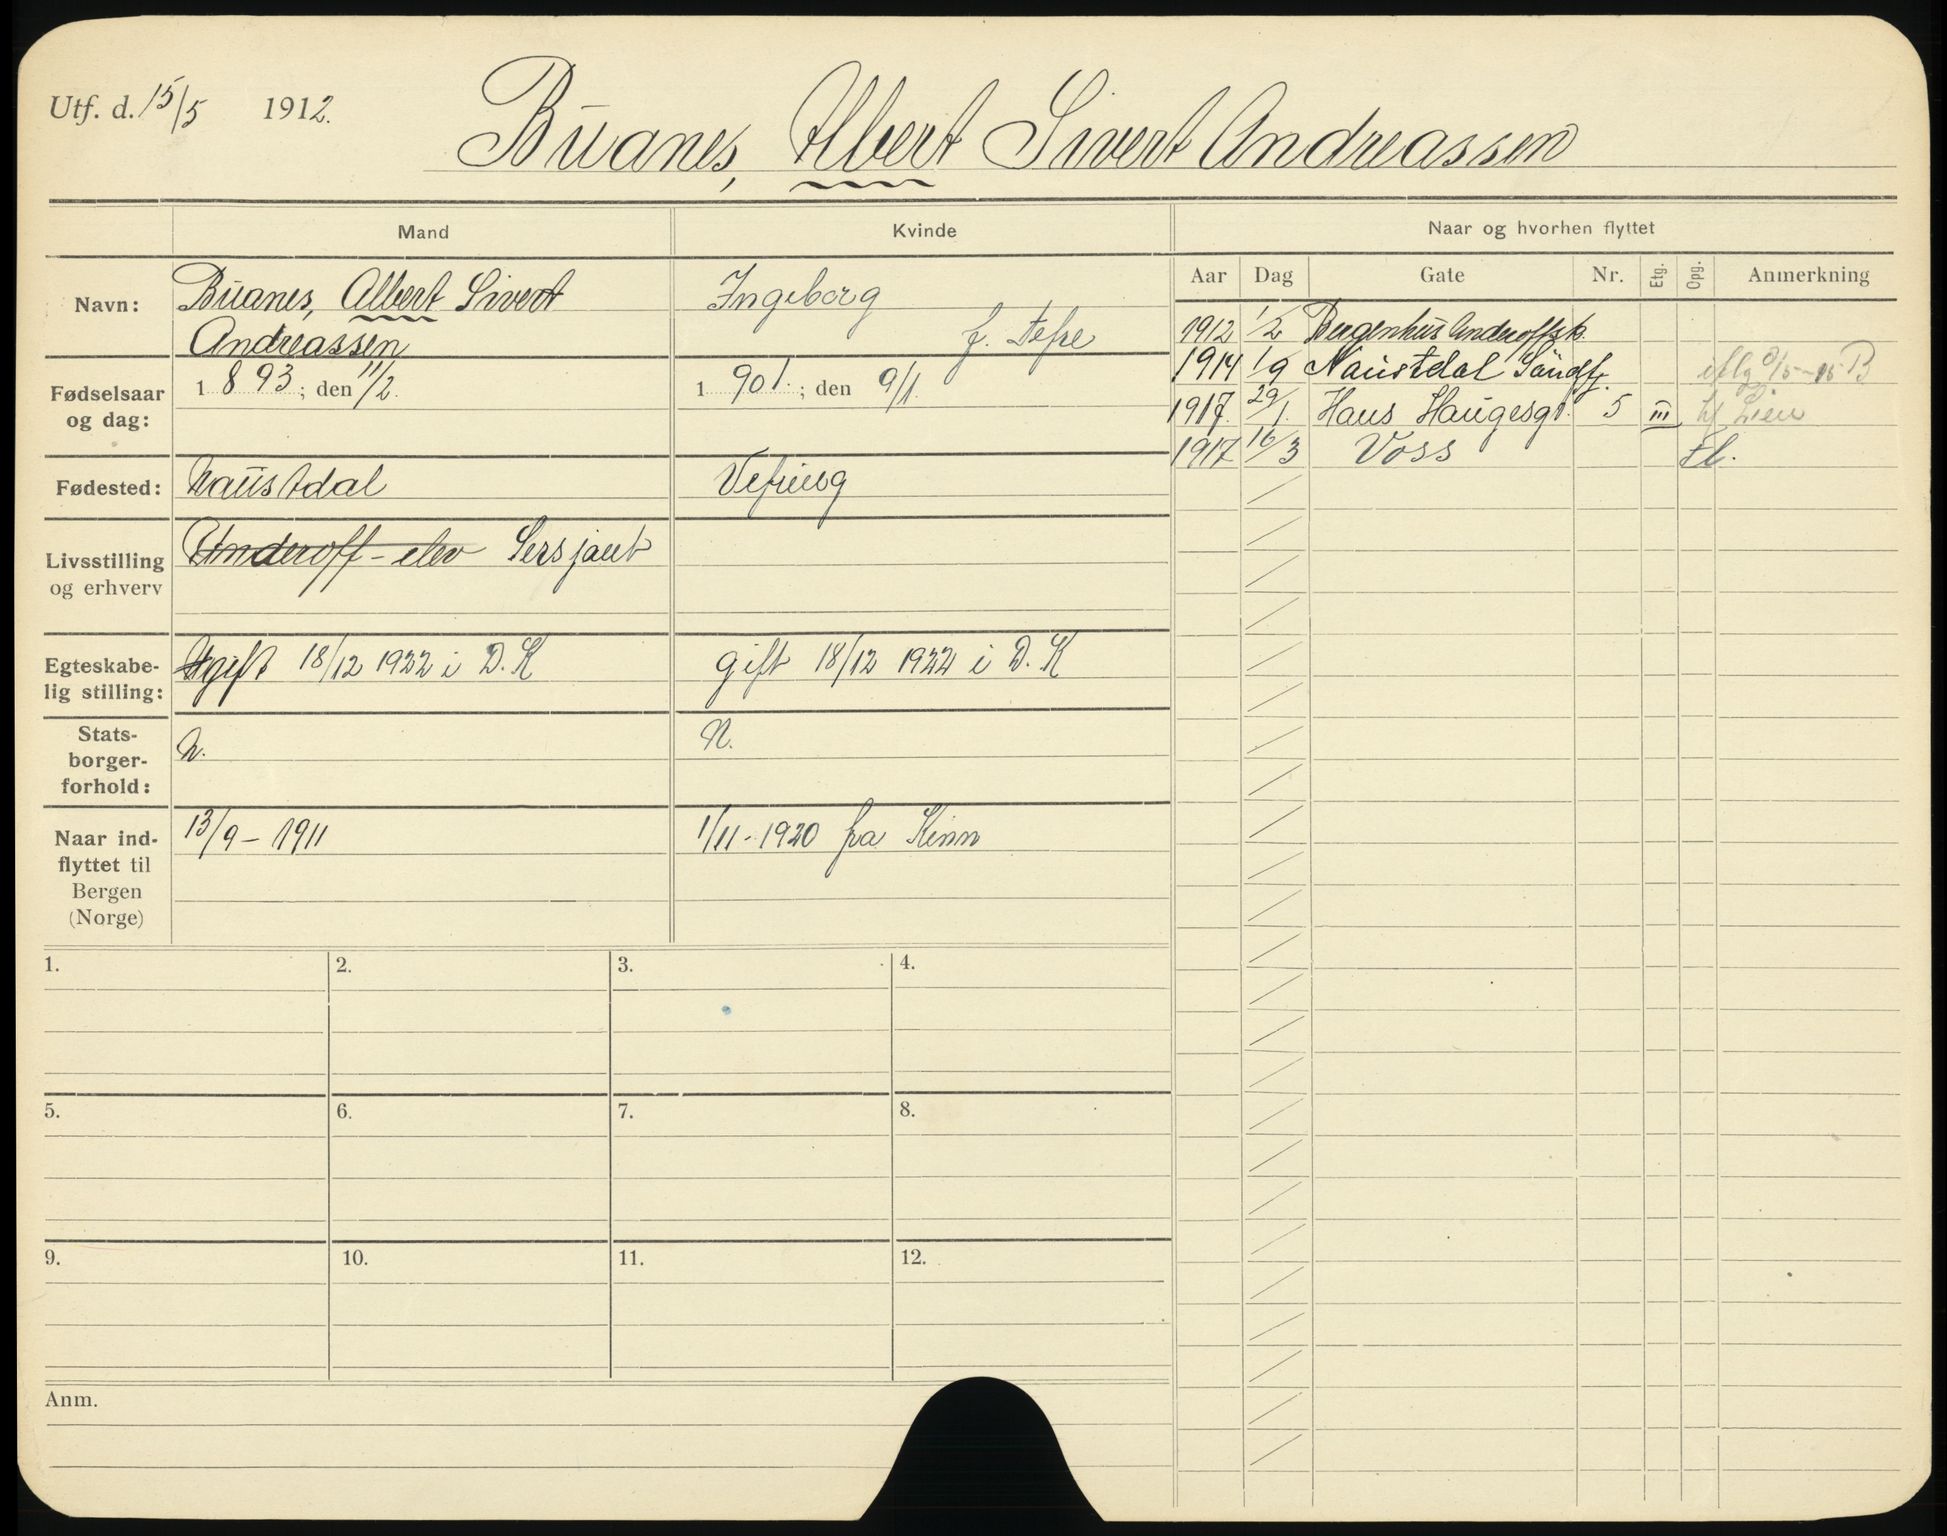 Utf. d. 15/5 1912.
Buanes, Albert Sivert Andreassen
Mand
Kvinde
Naar og hvorhen flyttet
Navn:
Buanes, Albert Sivert
Andreassen
Ingeborg
f. Tefre
Fødselsaar
og dag:
1 893; den 11/2.
1 901.; den 9/1
Fødested:
Naustdal
Vefring
Livsstilling
og erhverv
Underoff-elev Sersjant
Egteskabe-
lig stilling:
Ugift 18/12 1922 i D.K
gift 18/12 1922 i D.K
Stats-
borger-
forhold:
N.
N.
Naar ind-
flyttet til
Bergen
(Norge)
13/9-1911
1/11-1920 fra Kinn
Aar Dag Gate Nr. Etg. Opg. Anmerkning
1912 1/2 Bergenhus Underoffsk.
1914 1/9 Naustdal Söndfj. iflg 8/5-15 B
1917. 29/1. Haus Haugesgt. 5 III Lien
1917 16/3 Voss fl.
1. 2. 3. 4.
5. 6. 7. 8.
9. 10. 11. 12.
Anm.